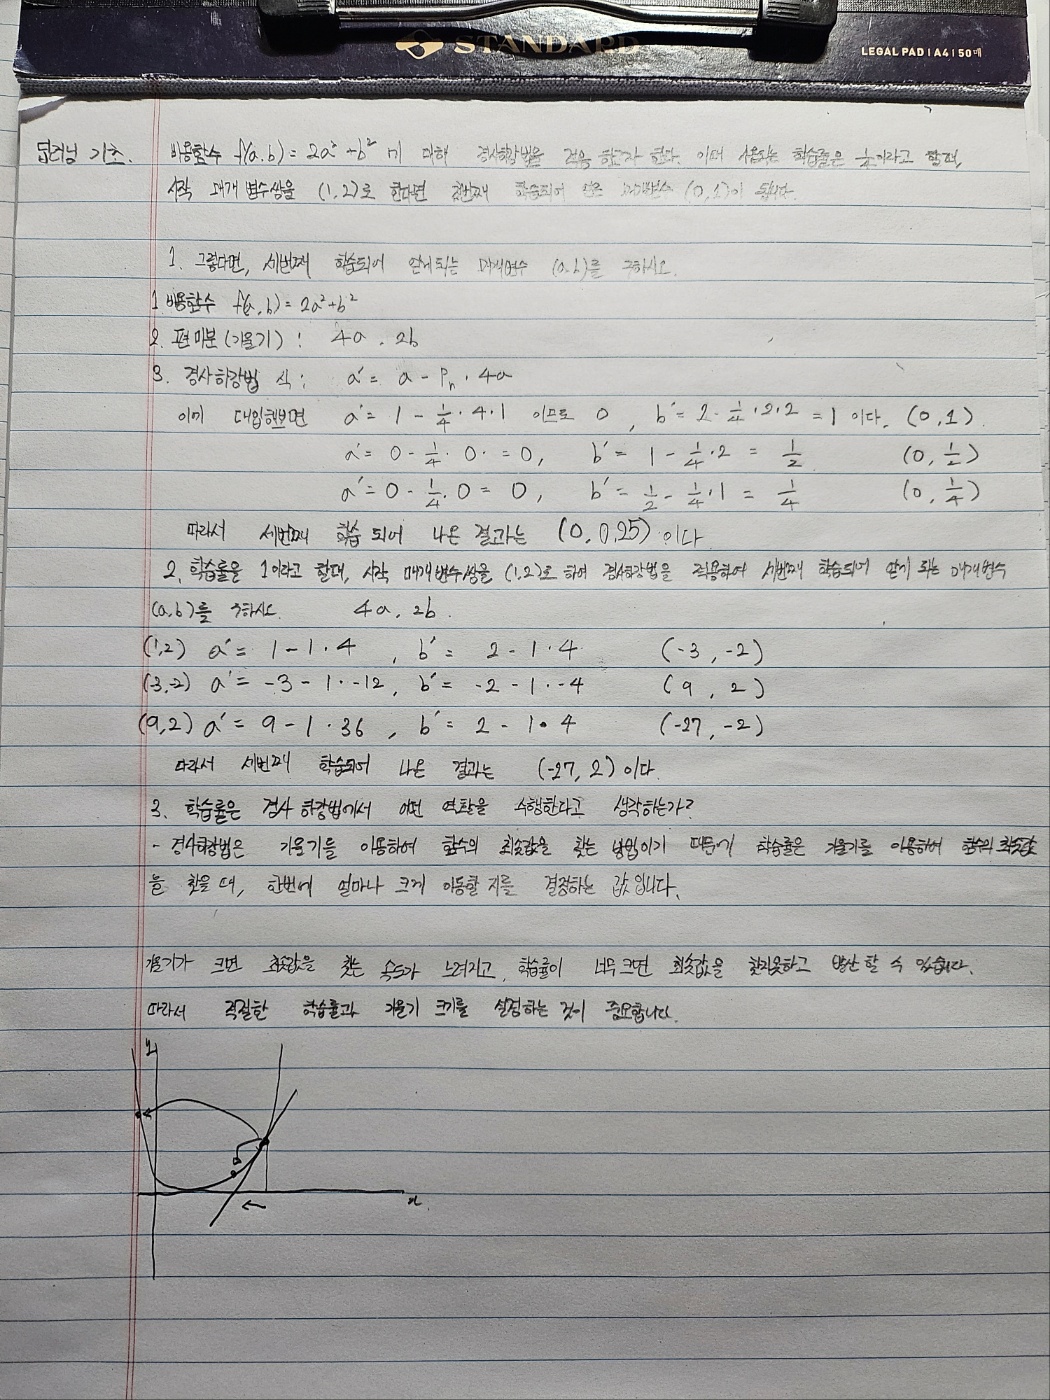 STANDARD
LEGAL PAD | A4 | 50매
딥러닝 기초. 비용함수 f(a,b) = 2a² + b² 에 대해 경사하강법을 적용 하고자 한다. 이때 사용되는 학습률은 ¼이라고 할때,
시작 매개 변수쌍을 (1,2)로 한다면 첫번째 학습되어 얻은 매개변수 (0,1)이 됩니다.
1. 그렇다면, 세번째 학습되어 얻게되는 매개변수 (a,b)를 구하시오.
1 비용함수 f(a,b) = 2a²+b²
2. 편미분(기울기) : 4a . 2b
3. 경사하강법 식 : a' = a - Pn · 4a
이때 대입해보면 a' = 1 - ¼ · 4 · 1 이므로 0 , b' = 2 - ¼ · 2 · 2 = 1 이다. (0,1)
a' = 0 - ¼ · 0 · = 0, b' = 1 - ¼ · 2 = ½ (0, ½)
a' = 0 - ¼ · 0 = 0, b' = ½ - ¼ · 1 = ¼ (0, ¼)
따라서 세번째 학습 되어 나온 결과는 (0, 0.25) 이다
2. 학습률을 1이라고 할때, 시작 매개변수쌍을 (1,2)로 하여 경사하강법을 적용하여 세번째 학습되어 얻게 되는 매개변수
(a,b)를 구하시오. 4a, 2b.
(1,2) a' = 1 - 1 · 4 , b' = 2 - 1 · 4 (-3, -2)
(-3,-2) a' = -3 - 1 · -12, b' = -2 - 1 · -4 (9, 2)
(9,2) a' = 9 - 1 · 36 , b' = 2 - 1 · 4 (-27, -2)
따라서 세번째 학습되어 나온 결과는 (-27, 2) 이다.
3. 학습률은 경사 하강법에서 어떤 역할을 수행한다고 생각하는가?
- 경사하강법은 기울기를 이용하여 함수의 최솟값을 찾는 방법이기 때문에 학습률은 기울기를 이용하여 함수의 최솟값
을 찾을 때, 한번에 얼마나 크게 이동할 지를 결정하는 값 입니다.
기울기가 크면 최솟값을 찾는 속도가 느려지고, 학습률이 너무 크면 최솟값을 찾지못하고 발산 할 수 있습니다.
따라서 적절한 학습률과 기울기 크기를 설정하는 것이 중요합니다.
y
x